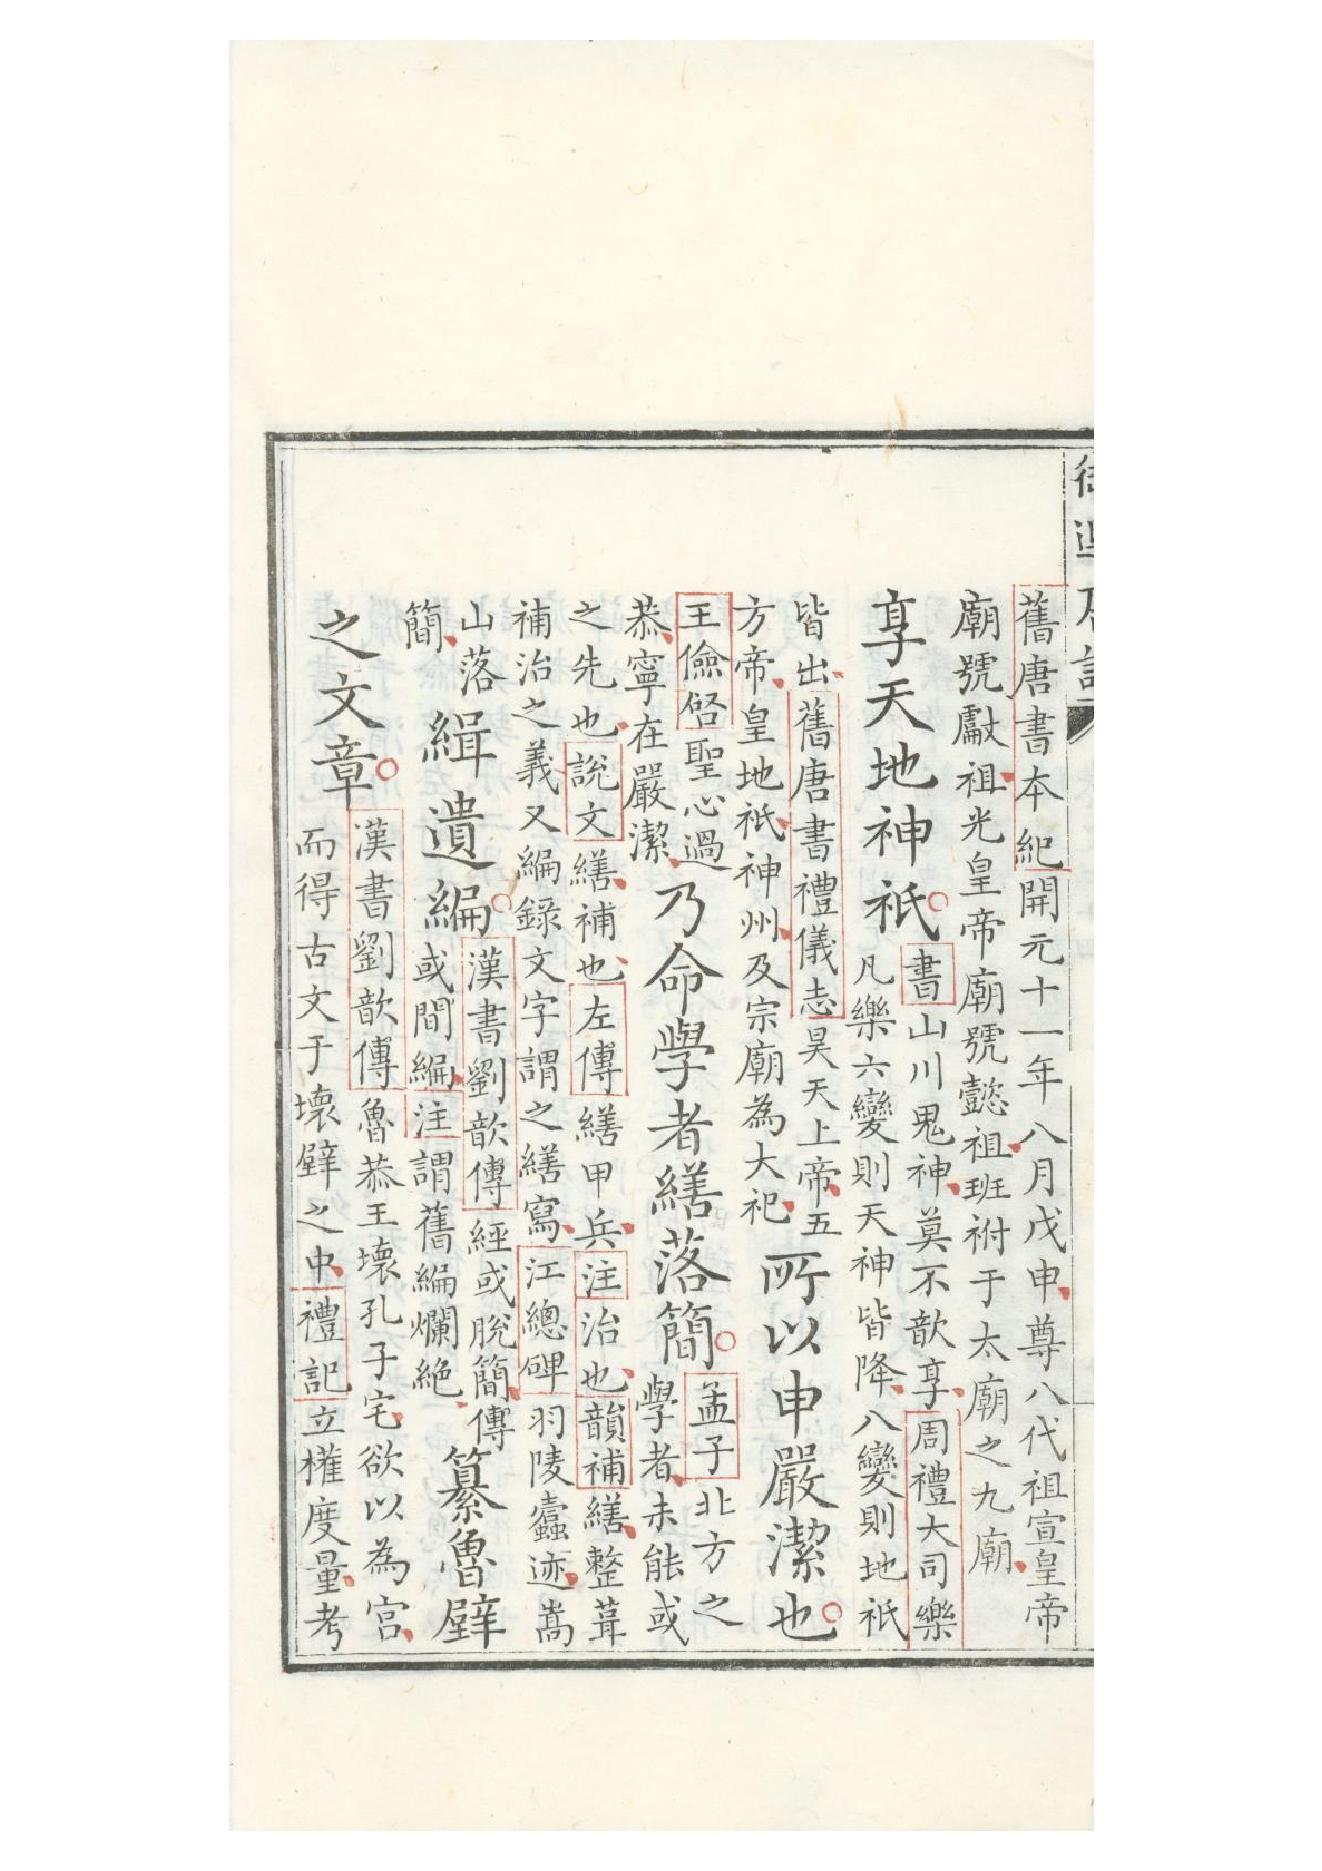 舊唐書本紀開元十一年八月戊申尊八代祖宣皇帝
廟號獻祖光皇帝廟號懿祖班祔于太廟之九廟
享天地神祇
書山川鬼神莫不歆享周禮大司樂
凡樂六變則天神皆降八變則地祇
皆出舊唐書禮儀志昊天上帝五
方帝皇地祇神州及宗廟為大祀
所以申嚴潔也
王儉啓聖心過
恭寧在嚴潔
乃命學者繕落簡
孟子北方之
學者未能或
之先也說文繕補也左傳繕甲兵注治也韻補繕整葺
補治之義又編錄文字謂之繕寫江總碑羽陵蠹迹嵩
山落
簡
緝遺編
漢書劉歆傳經或脫簡傳
或間編注謂舊編爛絕
纂魯壁
之文章
漢書劉歆傳魯恭王壞孔子宅欲以為宮
而得古文于壞壁之中禮記立權度量考